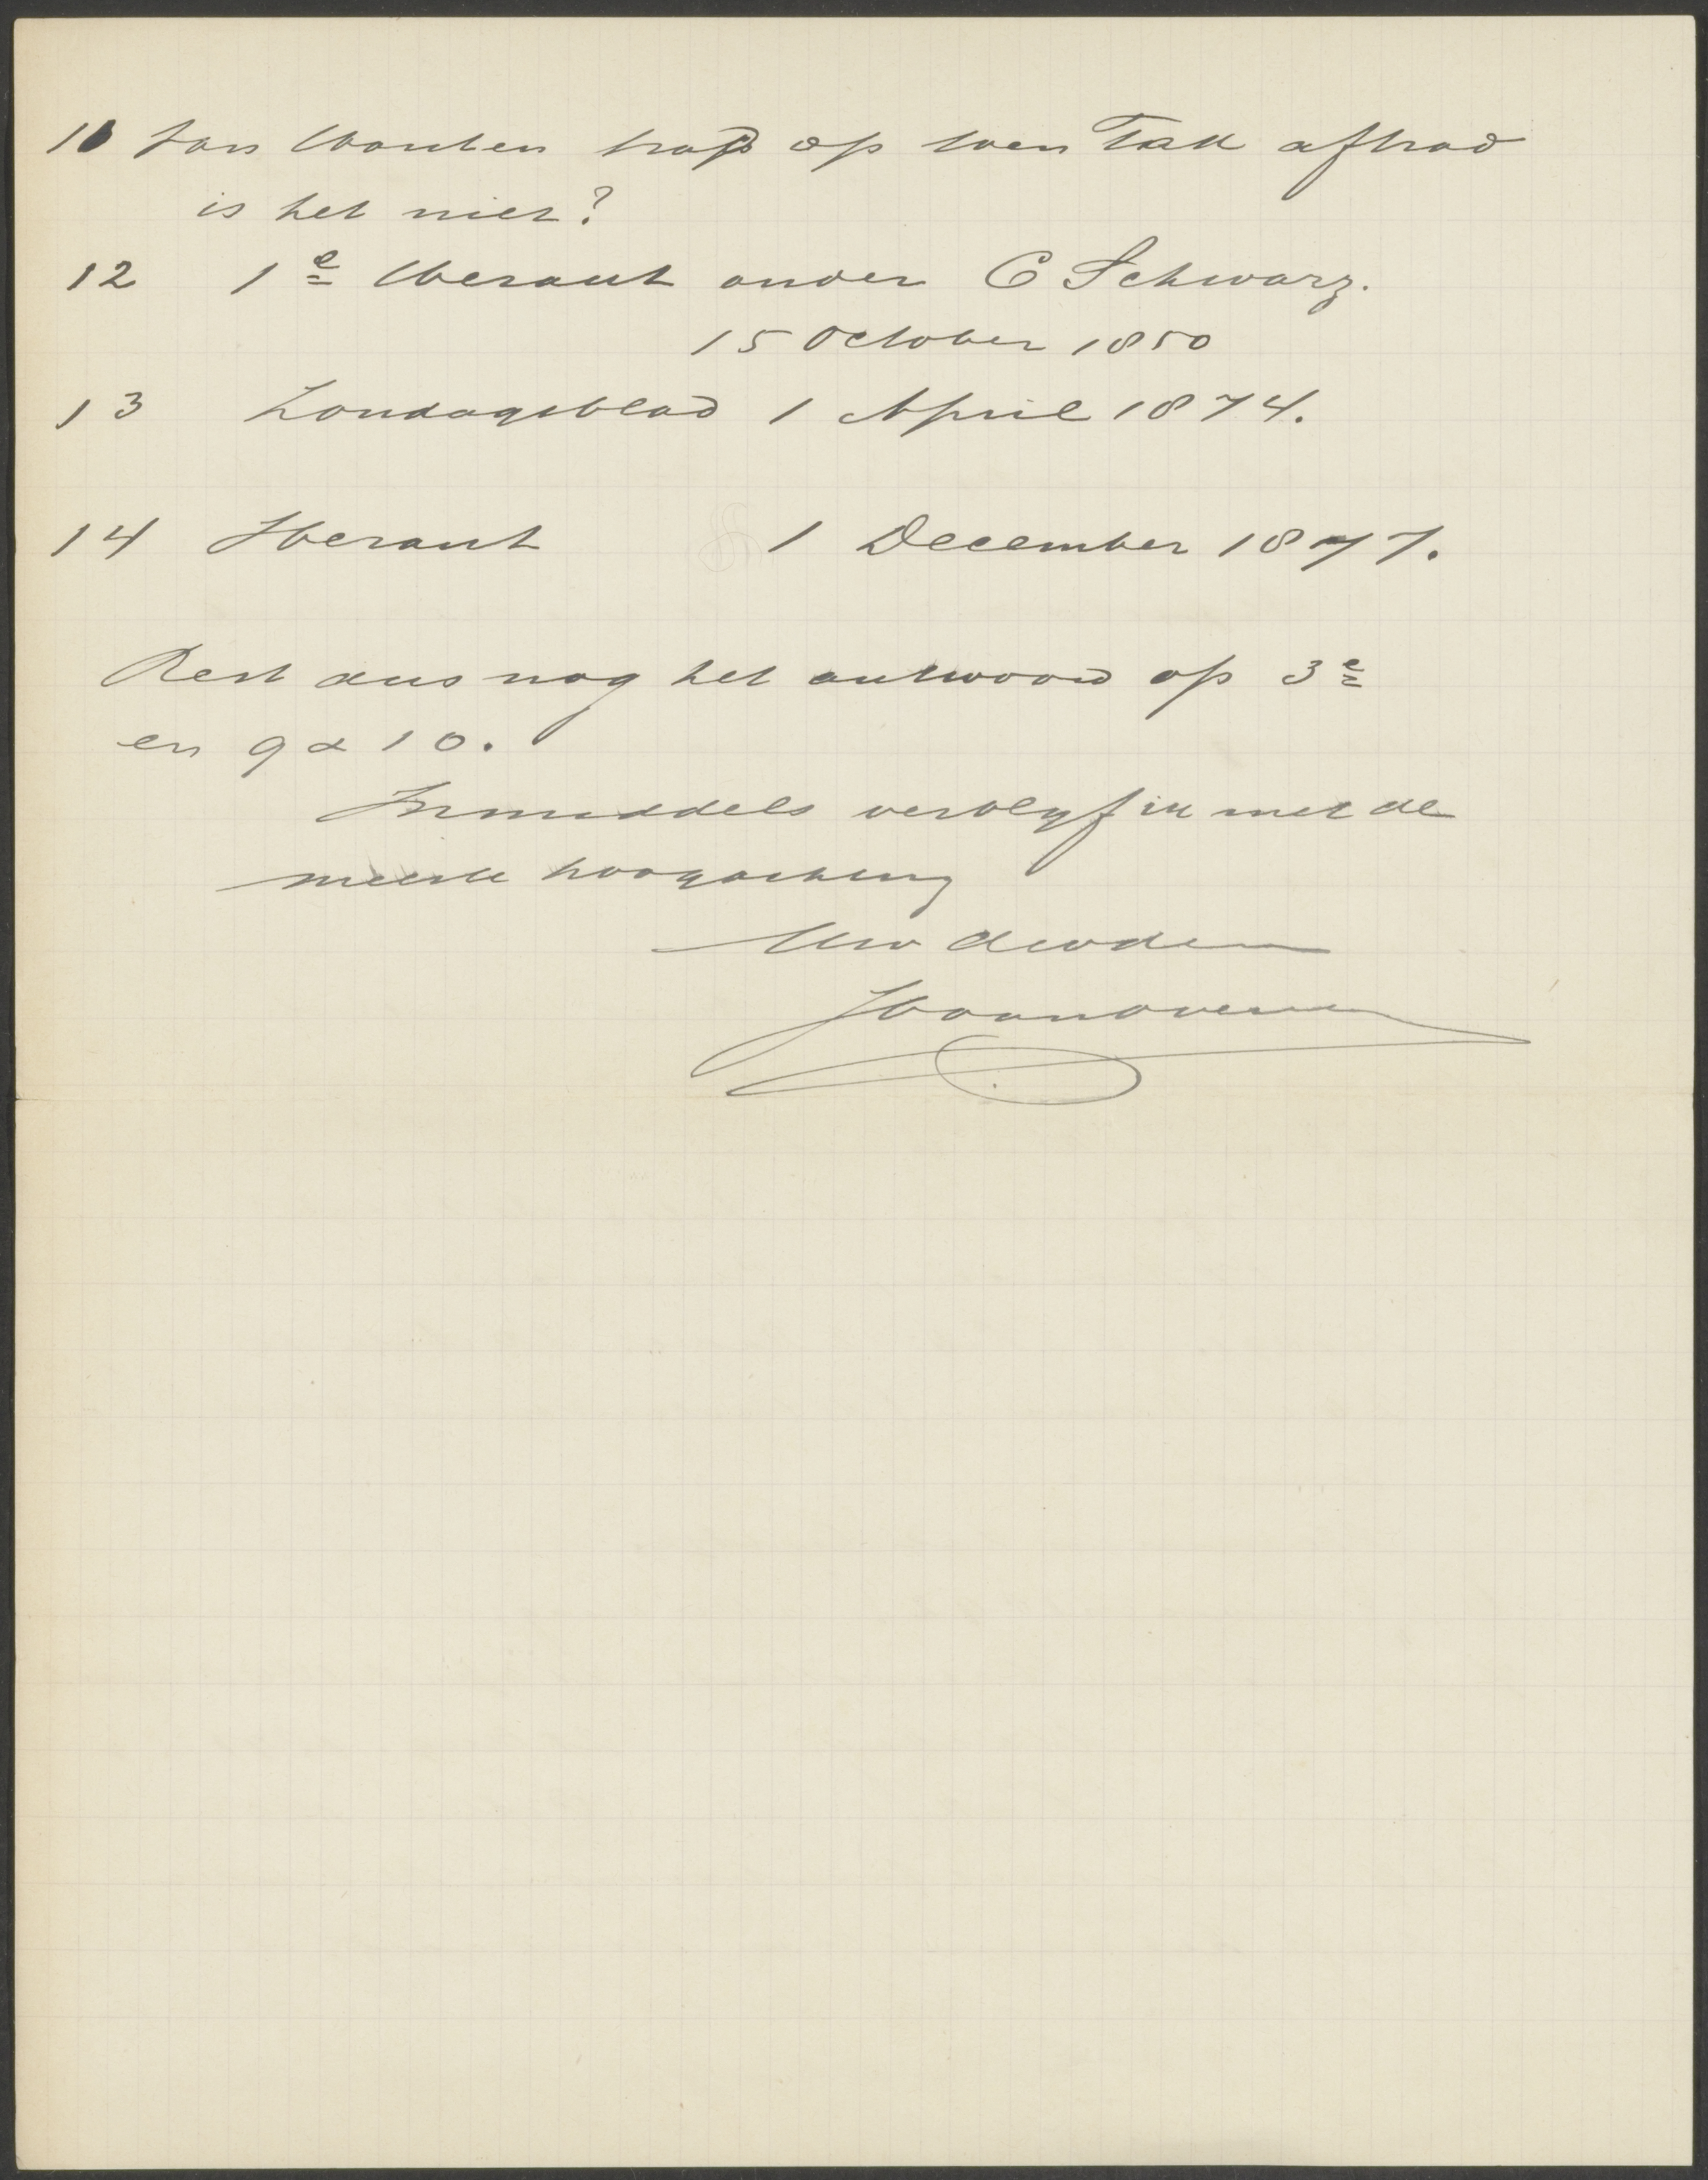 10 Jan Wouten trad op toen Tak aftrad
is het niet?
12 1e Heraut onder C Schwarz.
15 October 1850
13 Zondagsblad 1 April 1874.
14 Heraut 1 December 1877.
Rest dus nog het antwoord op 3e
en 9 a 10.
Inmiddels verblyf ik met de
meeste hoogachting
Uw dwdr
Hoonoveren